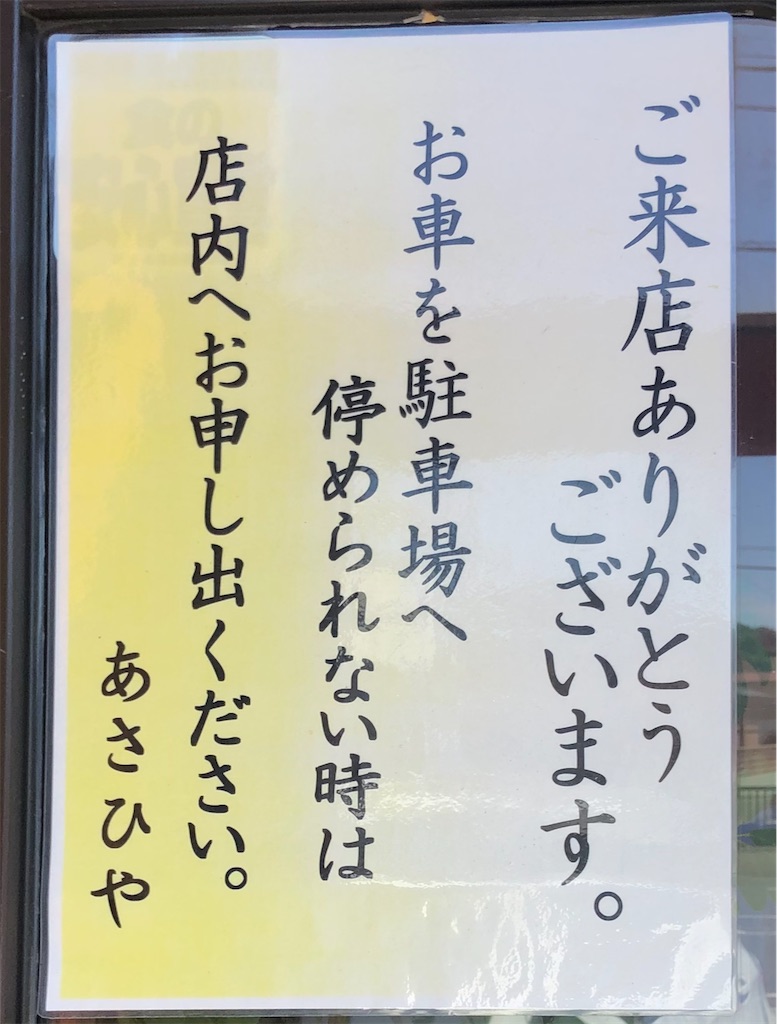 ご来店ありがとう
ございます。
お車を駐車場へ
停められない時は
店内へお申し出ください。
あさひや